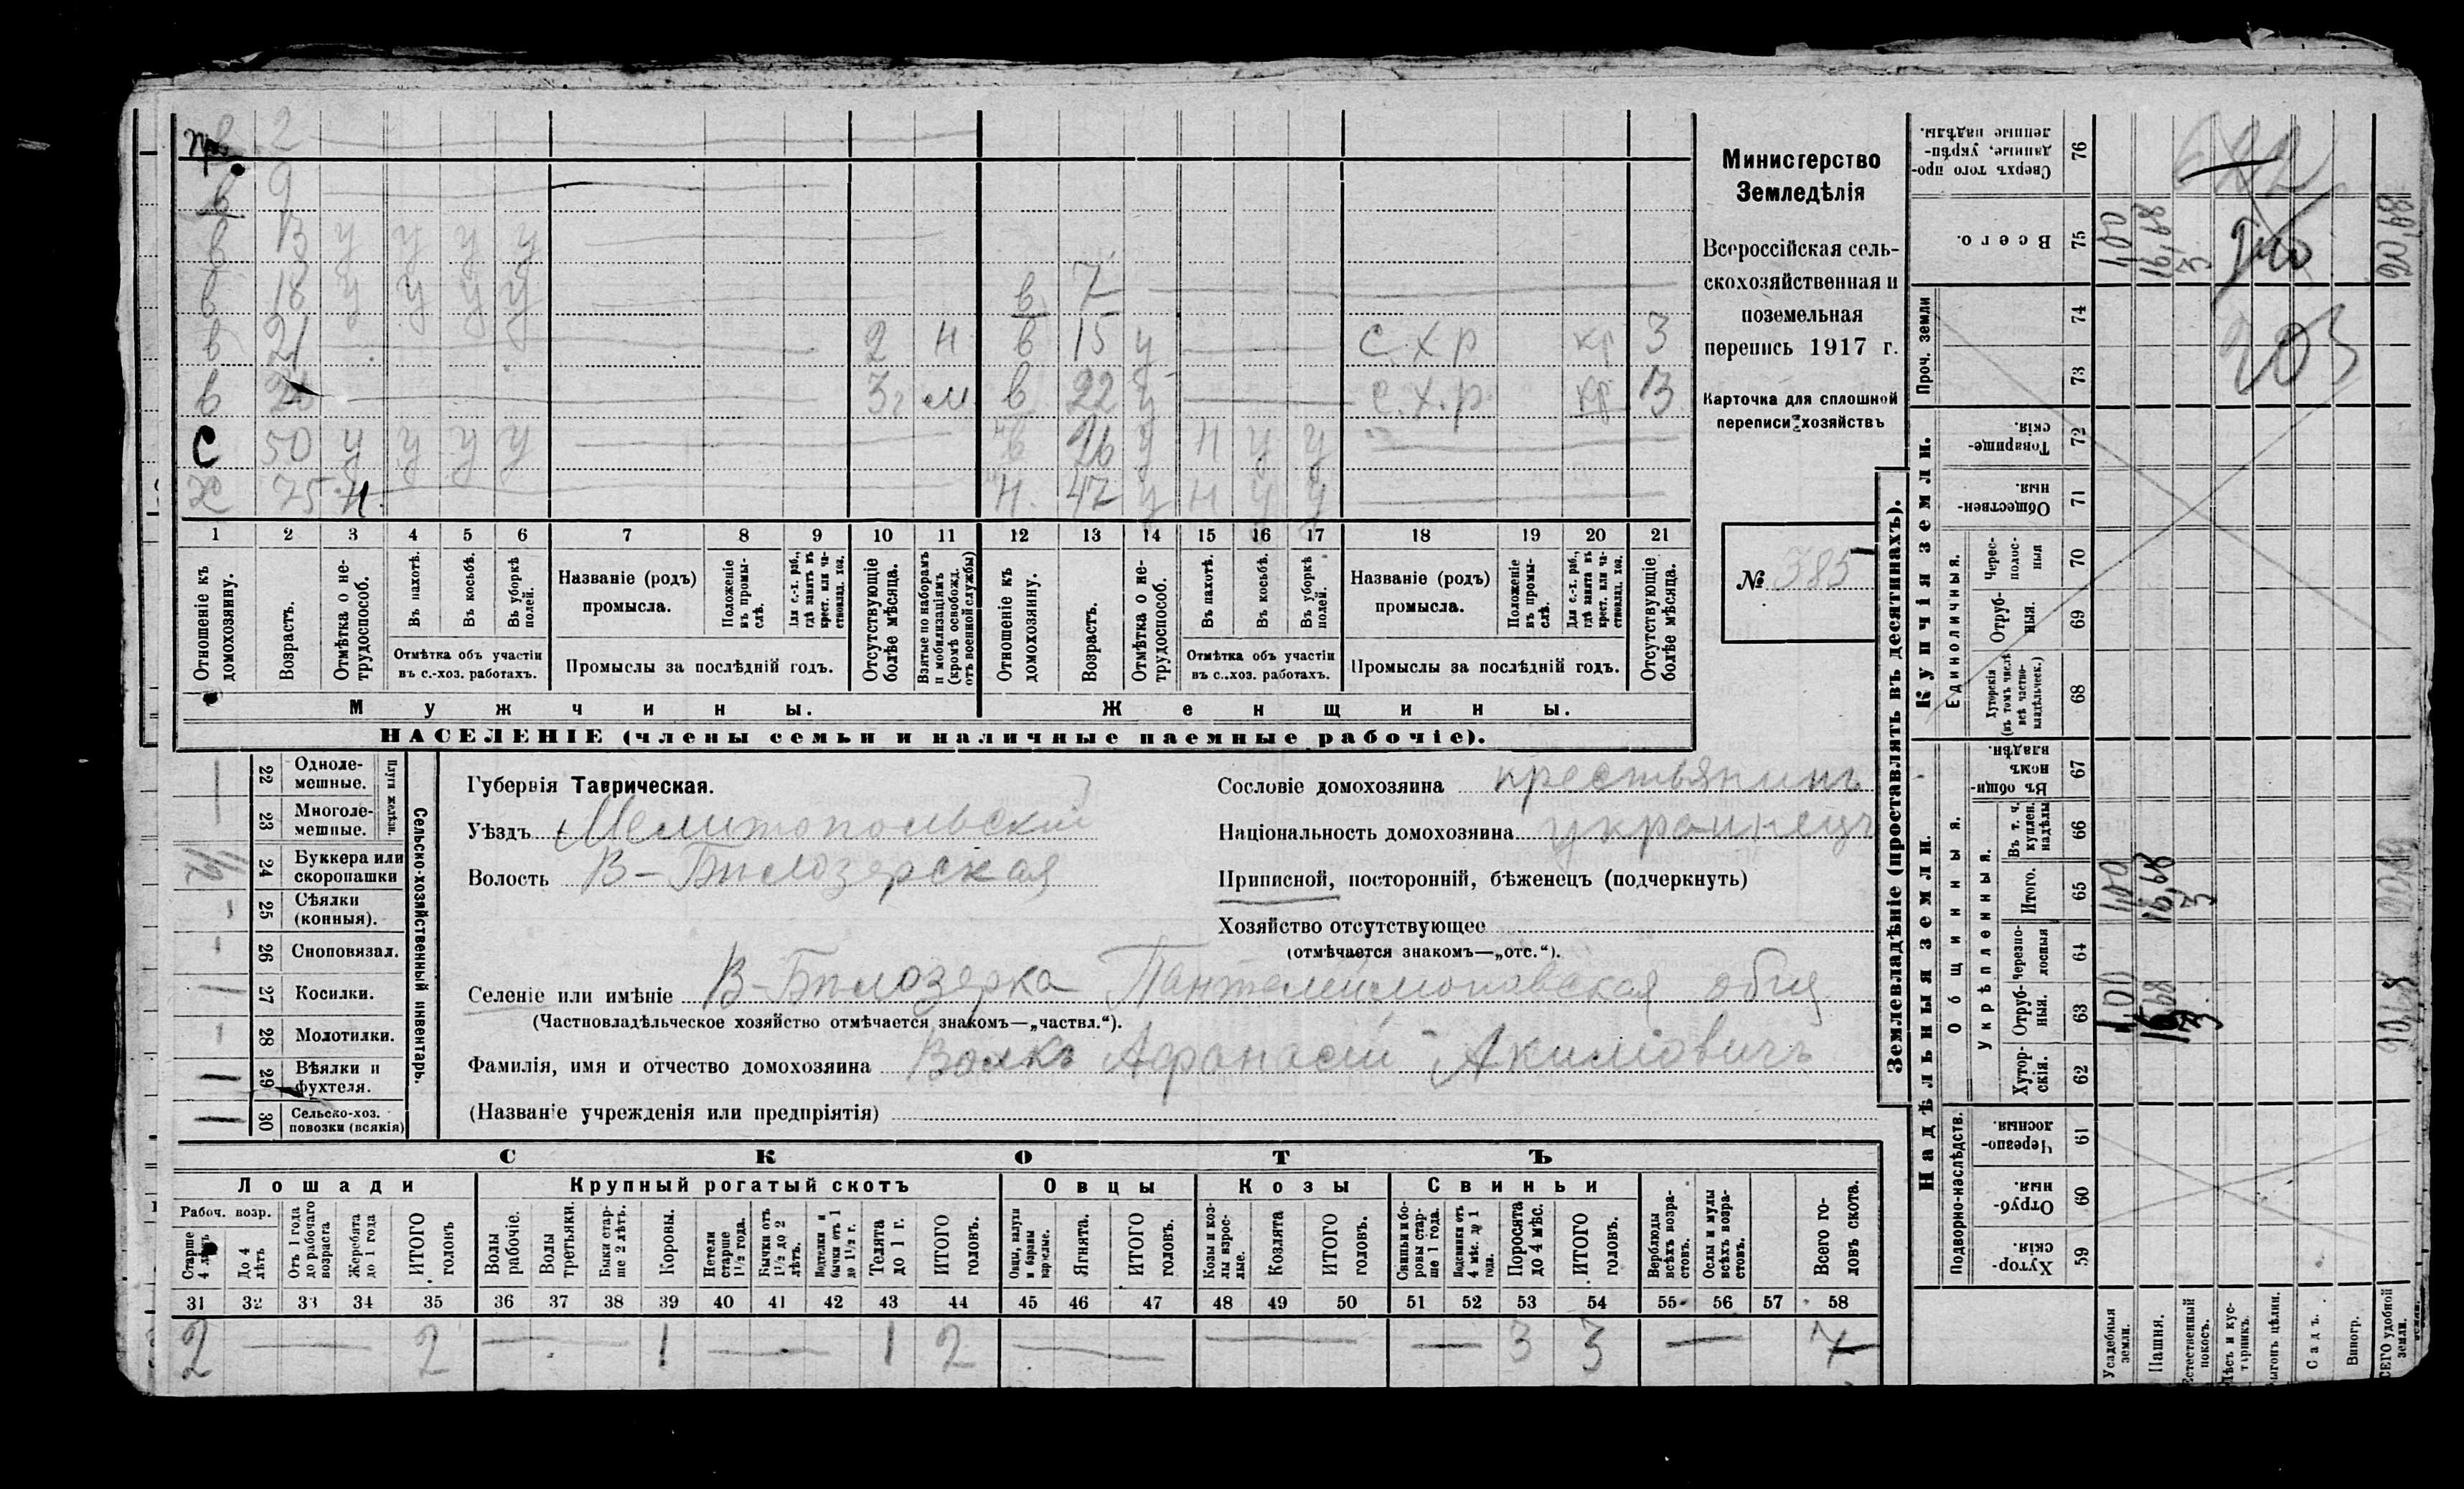 2
в 9
в 13 у у у у
в 18 у у у у в 7
в 21 2 н в 15 у с.х.р кр 3
в 3г м в 22 у с.х.р. кр 13
С 50 у у у у 26 у н у у
75 н. н. 47 у н у у
1 2 3 4 5 6 7 8 9 10 11 12 13 14 15 16 17 18 19 20 21
Отношеніе къ домохозяину.
Возрастъ.
Отмѣтка о нетрудоспособ.
Въ пахотѣ.
Въ косьбѣ.
Въ уборкѣ полей.
Отмѣтка объ участіи
въ с.-хоз. работахъ.
Названіе (родъ)
промысла.
Положеніе въ промыслѣ.
Для с.-х. раб., гдѣ занятъ въ крест. или частновлад. хоз.
Промыслы за послѣдній годъ.
Отсутствующіе болѣе мѣсяца.
Взятые по наборамъ и мобилизаціямъ (кромѣ освобожд. отъ военной службы)
Отношеніе къ домохозяину.
Возрастъ.
Отмѣтка о нетрудоспособ.
Въ пахотѣ.
Въ косьбѣ.
Въ уборкѣ полей.
Отмѣтка объ участіи
въ с.-хоз. работахъ.
Названіе (родъ)
промысла.
Положеніе въ промыслѣ.
Для с.-х. раб., гдѣ занята въ крест. или частновлад. хоз.
Промыслы за послѣдній годъ.
Отсутствующіе болѣе мѣсяца.
Мужчины. Женщины.
НАСЕЛЕНІЕ (члены семьи и наличные наемные рабочіе).
Министерство
Земледѣлія
Всероссійская сель-
скохозяйственная и
поземельная
перепись 1917 г.
Карточка для сплошной
переписи хозяйствъ
№ 385
22 Одноле-
мешные.
23 Многоле-
мешные.
Плуги желѣзн.
24 Буккера или
скоропашки
25 Сѣялки
(конныя).
26 Сноповязал.
27 Косилки.
28 Молотилки.
29 Вѣялки и
фухтеля.
30 Сельско-хоз.
повозки (всякія)
Сельско-хозяйственный инвентарь.
Губернія Таврическая.
Уѣздъ Мелитопольскій
Волость В-Бѣлозерская
Сословіе домохозяина крестьянинъ
Національность домохозяина украинецъ
Приписной, посторонній, бѣженецъ (подчеркнуть)
Хозяйство отсутствующее
(отмѣчается знакомъ—„отс.“).
Селеніе или имѣніе В-Бѣлозерка Пантелеймоновская общ
(Частновладѣльческое хозяйство отмѣчается знакомъ—„частвл.“).
Фамилія, имя и отчество домохозяина Волкъ Афанасій Акимовичъ
(Названіе учрежденія или предпріятія)
СКОТЪ
Лошади Крупный рогатый скотъ Овцы Козы Свиньи
Рабоч. возр.
Старше 4 лѣтъ
До 4 лѣтъ
Отъ 1 года до рабочаго возраста
Жеребята до 1 года
ИТОГО головъ
Волы рабочіе.
Волы третьяки.
Быки старше 2 лѣтъ.
Коровы.
Нетели старше 1½ года.
Бычки отъ 1½ до 2 лѣтъ.
Подтелки и бычки отъ 1 до 1½ г.
Телята до 1 г.
ИТОГО головъ.
Овцы, валухи и бараны взрослые.
Ягнята.
ИТОГО головъ.
Козы и козлы взрослые.
Козлята
ИТОГО головъ.
Свиньи и боровы старше 1 года.
Подсвинки отъ 4 мѣс. до 1 года.
Поросята до 4 мѣс.
ИТОГО головъ.
Верблюды всѣхъ возрастовъ.
Ослы и мулы всѣхъ возрастовъ.
Всего головъ скота.
31 32 33 34 35 36 37 38 39 40 41 42 43 44 45 46 47 48 49 50 51 52 53 54 55 56 57 58
2 2 1 1 2 3 3 7
Землевладѣніе (проставлять въ десятинахъ).
Надѣльныя земли. Купчія земли. Проч. земли
Подворно-наслѣдств.
Общинныя.
Укрѣпленныя.
Единоличныя.
59 Хуторскія.
60 Отрубныя.
61 Черезполосныя.
62 Хуторскія.
63 Отрубныя.
64 Черезполосныя
65 Итого.
66 Въ т. ч. куплен. надѣлы
67 Въ общинномъ владѣн.
68 Хуторскія (въ томъ числѣ всѣ частновладѣльческ.)
69 Отрубныя.
70 Черезполосныя
71 Общественныя.
72 Товарищескія.
73
74
75 Всего.
76 Сверхъ того проданные, укрѣпленные надѣлы.
Усадебныя земли.
Пашня.
Естественный покосъ.
Лѣсъ и кустарникъ.
Выгонъ цѣлин.
Садъ.
Виногр.
ВСЕГО удобной земли.
203